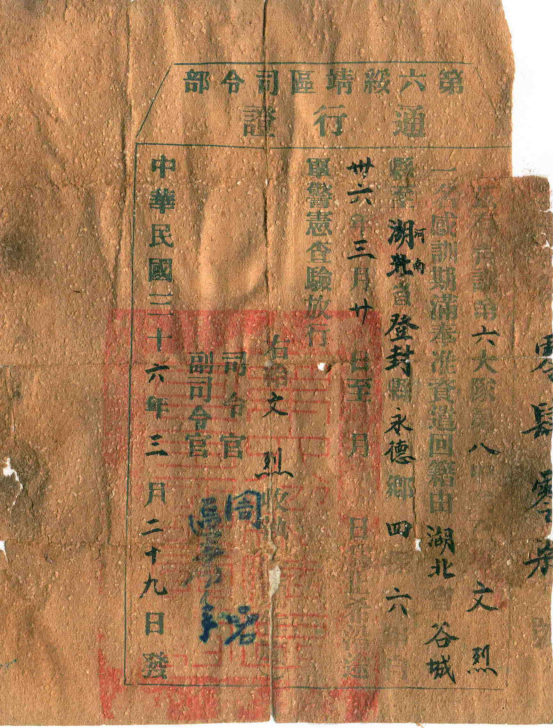 第六綏靖區司令部
通行證
六大隊 八 文烈
一名感訓期滿奉准資遣回籍由湖北省谷城
縣至湖北河南省登封縣永德鄉四 六
卅六年三月廿 日至 月 日 希沿途
軍警憲查驗放行
右給文烈收執
司令官 周嵒
副司令官
中華民國三十六年三月二十九日發